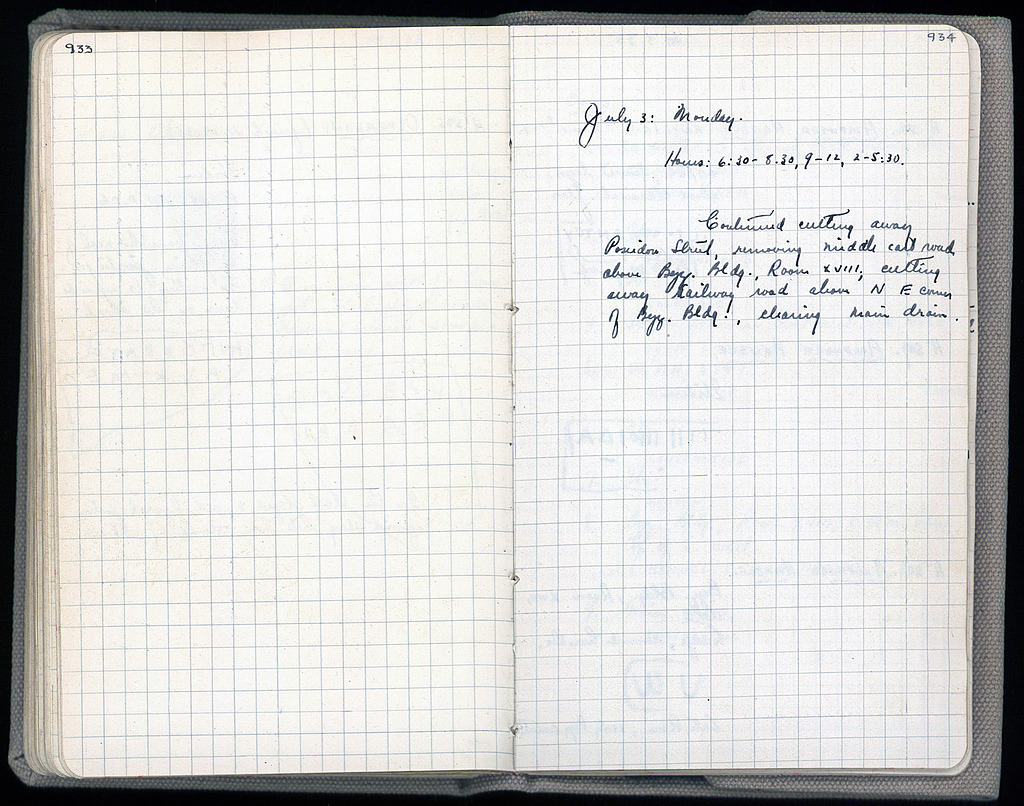 933
934
July 3: Monday.
Hours: 6:30-8.30, 9-12, 2-5:30.
Continued cutting away
Poseidon Street, removing middle cart road
above Byz. Bldg., Room XVIII; cutting
away Railway road above N E corner
of Byz. Bldg., clearing main drain.